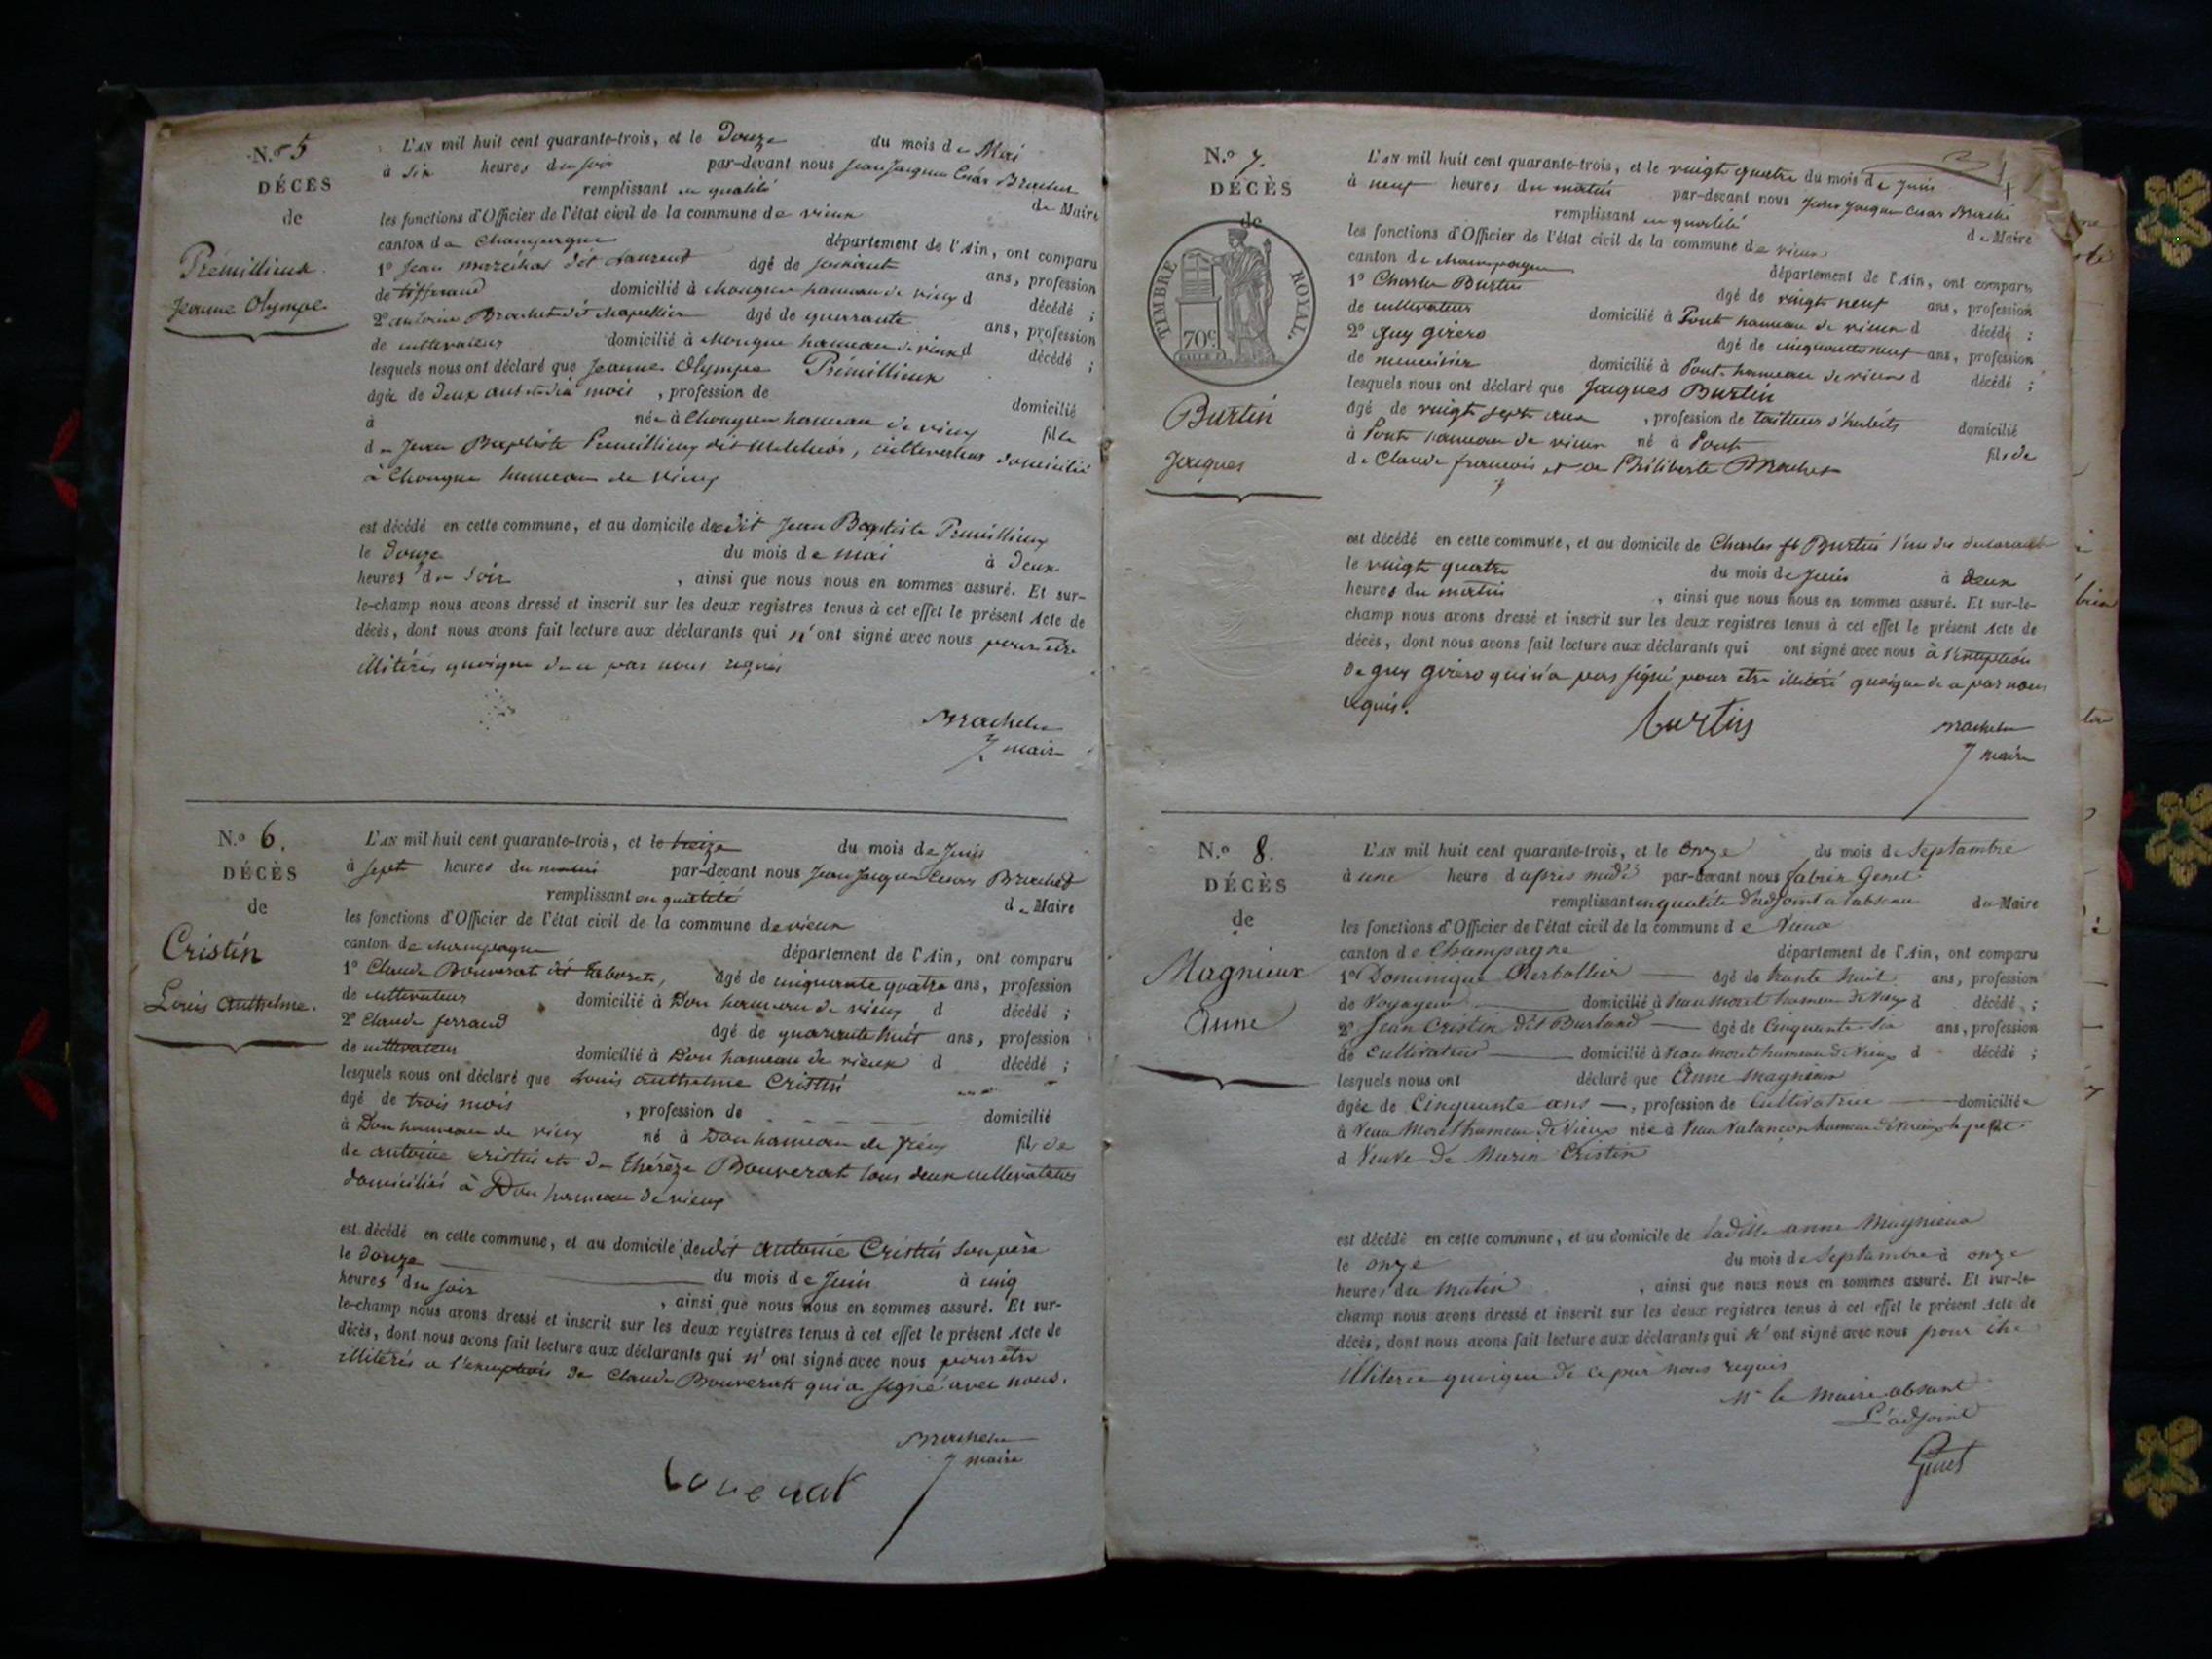 N.º 5
DÉCÈS
de
Prémillieux
Jeanne Olympe
L'AN mil huit cent quarante-trois, et le Douze du mois de Mai
à Six heures du soir par-devant nous Jean Jacques César Brachet
remplissant en qualité de Maire
les fonctions d'Officier de l'état civil de la commune de vieux
canton de Champagne département de l'Ain, ont comparu
1º Jean maréchal dit Laurent âgé de soixante ans, profession
de tisserand domicilié à chongnes hameau de vieux d décédé ;
2º antoine Brachet dit chapellier âgé de quarante ans, profession
de cultivateur domicilié à chongnes hameau de vieux d décédé ;
lesquels nous ont déclaré que Jeanne Olympe Prémillieux
âgée de deux ans et dix mois , profession de domicilié
à née à Chongnes hameau de vieux fille
de Jean Baptiste Premillieux dit Melchior, cultivateur domicilié
à Chongnes hameau de vieux
est décédé en cette commune, et au domicile de dit Jean Baptiste Premillieux
le douze du mois de mai à deux
heures du soir , ainsi que nous nous en sommes assuré. Et sur-
le-champ nous avons dressé et inscrit sur les deux registres tenus à cet effet le présent Acte de
décès, dont nous avons fait lecture aux déclarants qui n'ont signé avec nous pour être
illitérés quoique de ce par nous requis
Brachet
maire
N.º 6.
DÉCÈS
de
Cristin
Louis Anthelme.
L'AN mil huit cent quarante-trois, et le treize du mois de Juin
à sept heures du matin par-devant nous Jean Jacques César Brachet
remplissant en qualité de Maire
les fonctions d'Officier de l'état civil de la commune de vieux
canton de champagne département de l'Ain, ont comparu
1º Claude Bouverat dit Taboret, âgé de cinquante quatre ans, profession
de cultivateur domicilié à Don hameau de vieux d décédé ;
2º Claude ferraud âgé de quarante huit ans, profession
de cultivateur domicilié à Don hameau de vieux d décédé ;
lesquels nous ont déclaré que Louis anthelme Cristin
âgé de trois mois , profession de domicilié
à Don hameau de vieux né à Don hameau de vieux fils de
de antoine Cristin et de Thérèze Bouverat tous deux cultivateurs
domiciliés à Don hameau de vieux
est décédé en cette commune, et au domicile dudit antoine Cristin son père
le douze du mois de Juin à cinq
heures du soir , ainsi que nous nous en sommes assuré. Et sur-
le-champ nous avons dressé et inscrit sur les deux registres tenus à cet effet le présent Acte de
décès, dont nous avons fait lecture aux déclarants qui n'ont signé avec nous pour être
illitérés a l'exception de Claude Bouverat qui a signé avec nous.
Brachet
maire
bouverat
N.º 7.
DÉCÈS
de
TIMBRE ROYAL.
70c
Burtin
Jacques
L'AN mil huit cent quarante-trois, et le vingt quatre du mois de Juin
à neuf heures du matin par-devant nous Jean Jacques César Brachet
remplissant en qualité de Maire
les fonctions d'Officier de l'état civil de la commune de vieux
canton de champagne département de l'Ain, ont comparu
1º Charles Burtin âgé de vingt neuf ans, profession
de cultivateur domicilié à Pont hameau de vieux d décédé ;
2º Guy girero âgé de cinquante neuf ans, profession
de menuisier domicilié à Pont hameau de vieux d décédé ;
lesquels nous ont déclaré que Jacques Burtin
âgé de vingt sept ans , profession de tailleur d'habits domicilié
à Pont hameau de vieux né à Pont fils de
de Claude françois et de Philiberte Brachet
est décédé en cette commune, et au domicile de Charles ft Burtin l'un des déclarants
le vingt quatre du mois de Juin à deux
heures du matin , ainsi que nous nous en sommes assuré. Et sur-le-
champ nous avons dressé et inscrit sur les deux registres tenus à cet effet le présent Acte de
décès, dont nous avons fait lecture aux déclarants qui ont signé avec nous à l'exception
de guy girero qui n'a pas signé pour être illitéré quoique de ce par nous
requis.
burtin
Brachet
maire
N.º 8.
DÉCÈS
de
Magnieux
Anne
L'AN mil huit cent quarante-trois, et le onze du mois de Septambre
à une heure d'après midi par-devant nous Genet
remplissant en qualité d'adjoint a l'absence du Maire
les fonctions d'Officier de l'état civil de la commune de Vieux
canton de Champagne département de l'Ain, ont comparu
1º Dominique Berbollier âgé de trante huit ans, profession
de Voyageur domicilié à Vaux Moret hameau de Vieux d décédé ;
2º Jean Cristin dit Burland âgé de Cinquante-six ans, profession
de Cultivateur domicilié à Vaux moret hameau de Vieux d décédé ;
lesquels nous ont déclaré que Anne Magnieux
âgée de Cinquante ans , profession de Cultivatrice domiciliée
à Vaux Moret hameau de Vieux née à hameau de
d Veuve de Marin Cristin
est décédé en cette commune, et au domicile de ladite anne Magnieux
le onze du mois de Septambre à onze
heures du Matin , ainsi que nous nous en sommes assuré. Et sur-le-
champ nous avons dressé et inscrit sur les deux registres tenus à cet effet le présent Acte de
décès, dont nous avons fait lecture aux déclarants qui n'ont signé avec nous pour être
illiterée quoique de ce par nous requis
Mr le Maire absant
L'adjoint
Genet